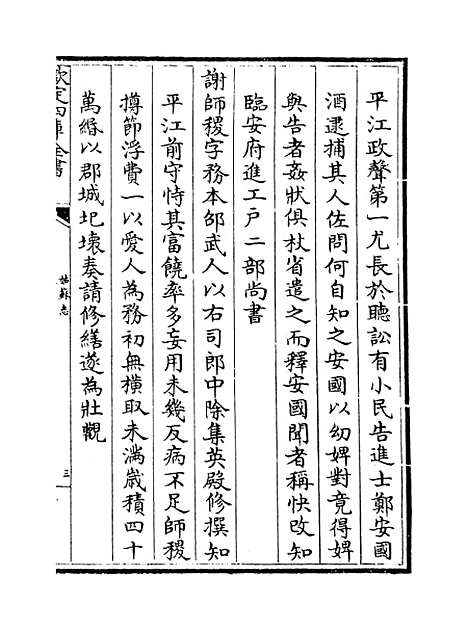 平江政聲第一尤長於聽訟有小民告進士鄭安國
酒逮捕其人佐問何自知之安國以幼婢對竟得婢
與告者姦狀俱杖省遣之而釋安國聞者稱快改知
臨安府進工戶二部尚書
謝師稷字務本邵武人以右司郎中除集英殿修撰知
平江前守恃其富饒率多妄用未幾反病不足師稷
撙節浮費一以愛人為務初無橫取未滿歲積四十
萬緡以郡城圮壊奏請修繕遂為壯觀
欽定四庫全書
姑蘇志
三